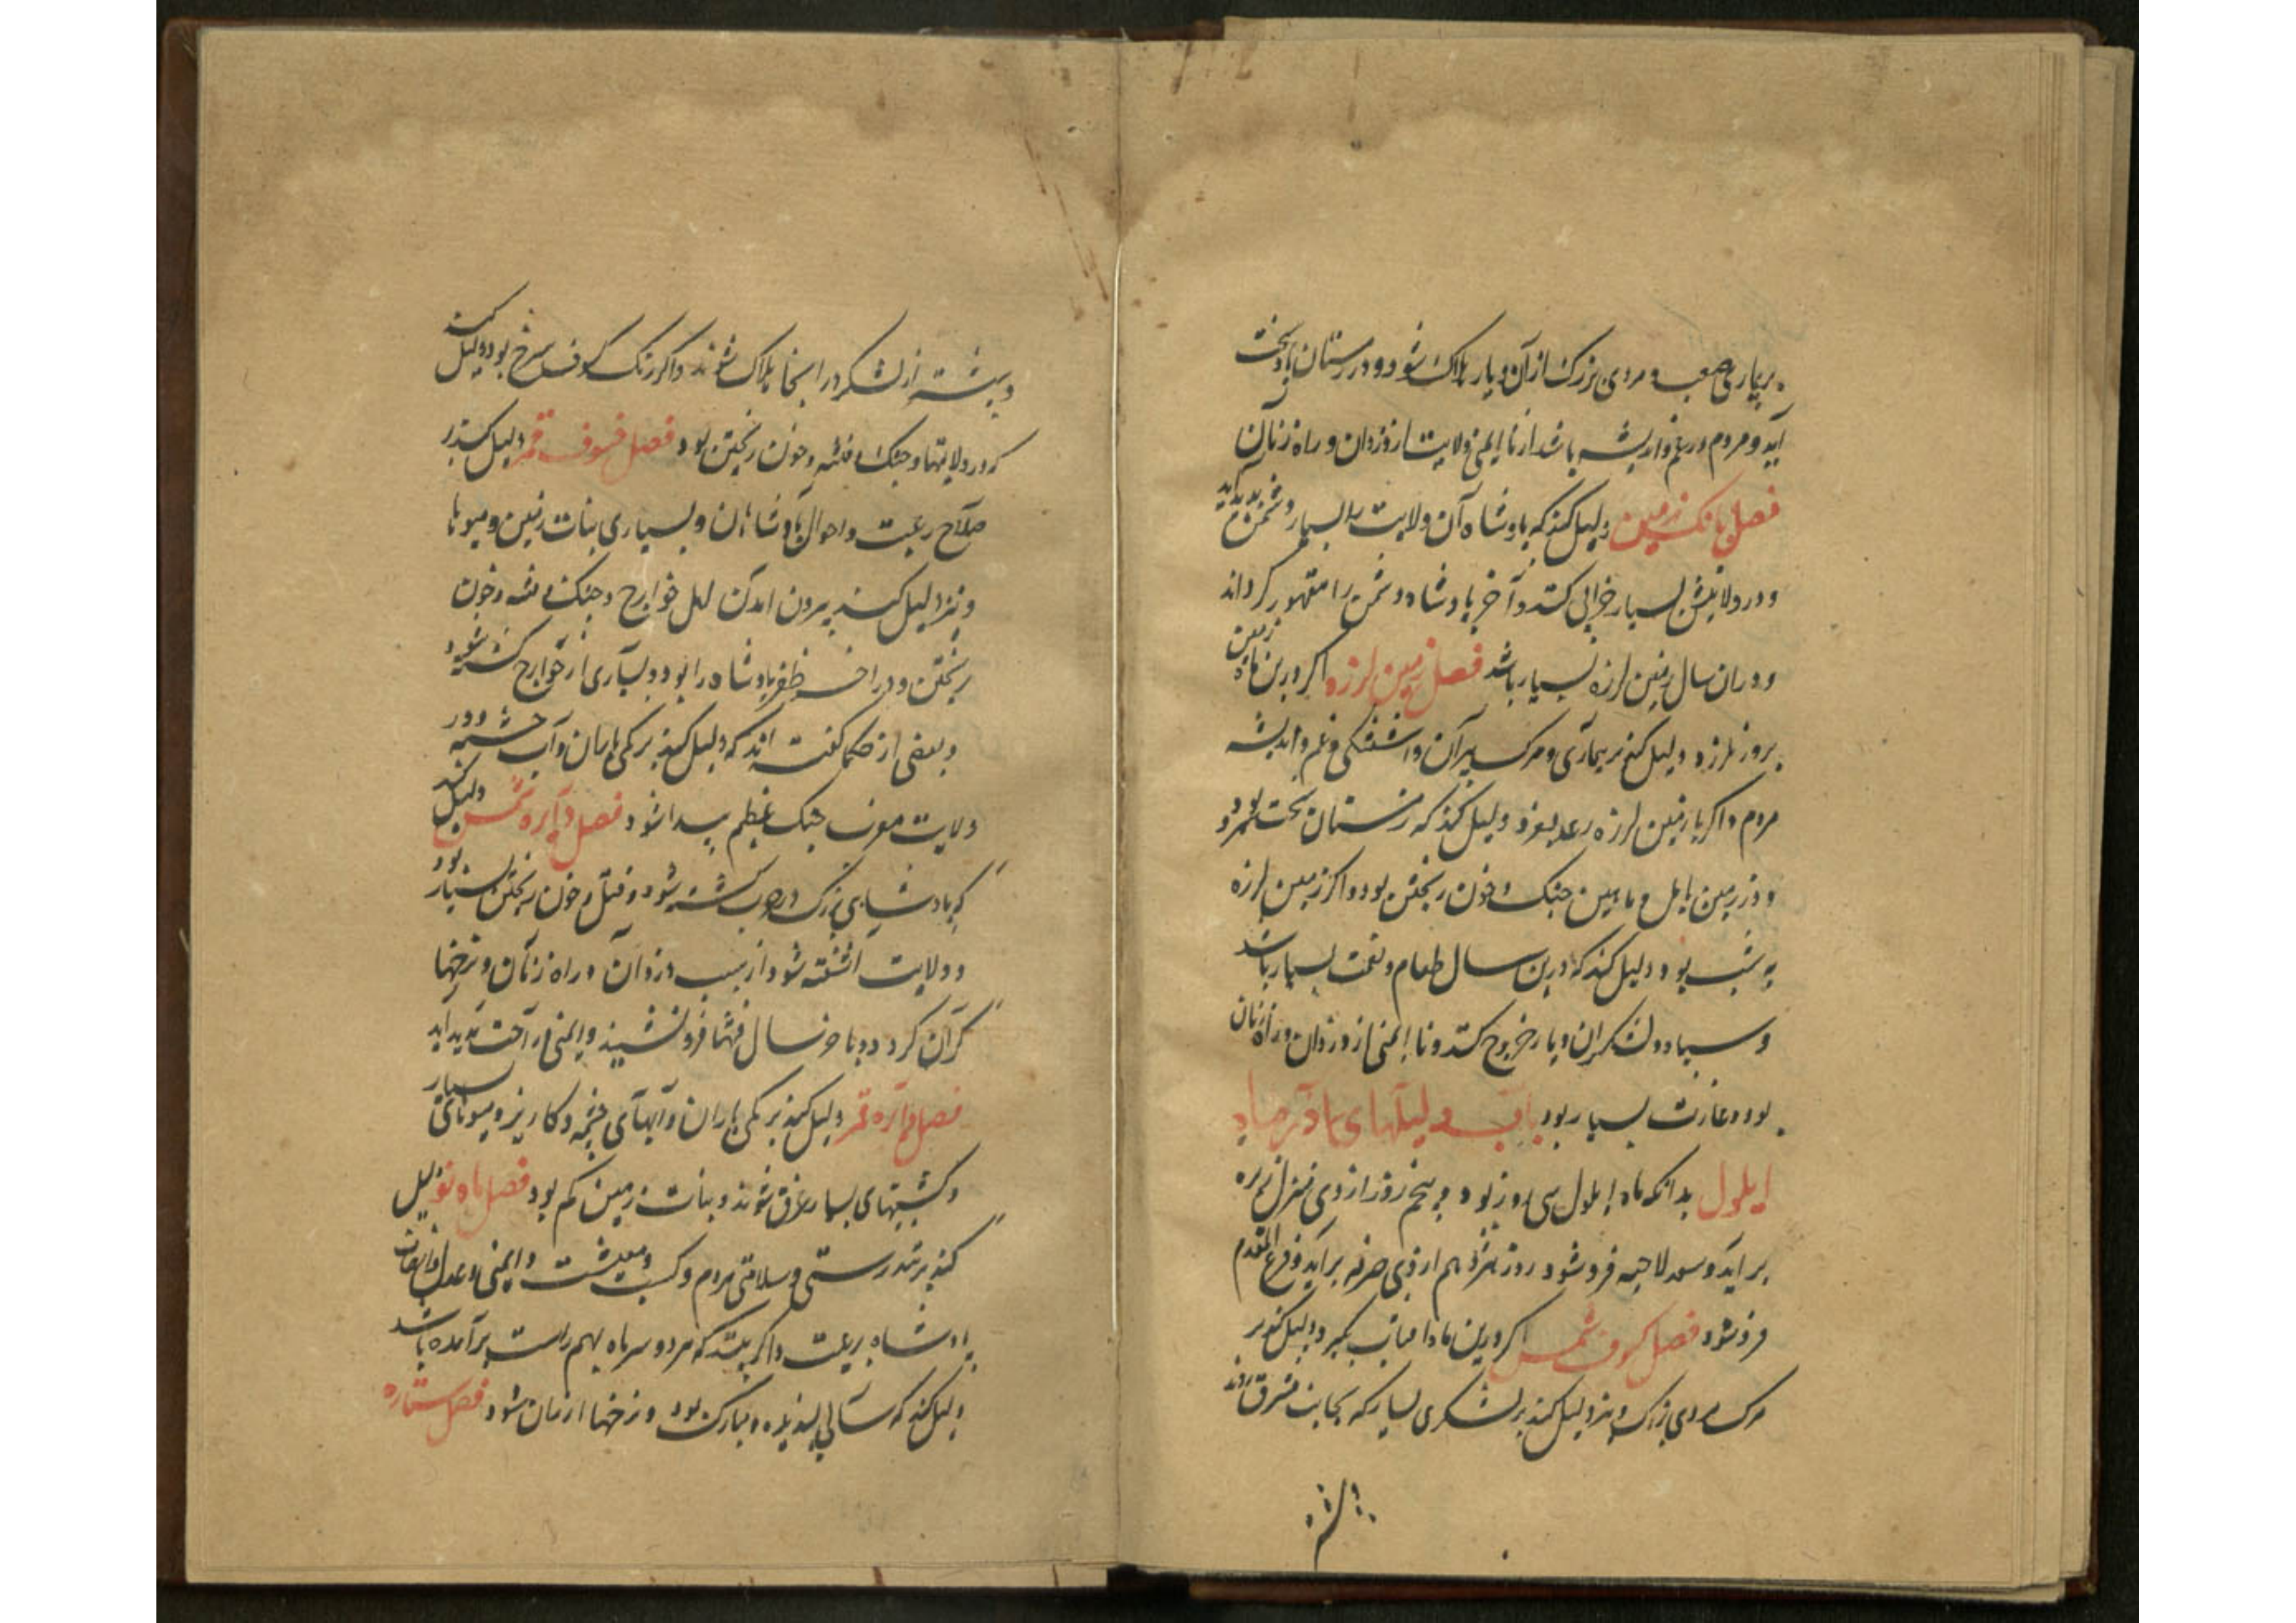 بر بیماری صعب و مردی بزرک از آن دیار هلاک شود و در زمستان باد سخت
آید و مردم در غم و اندیشه باشد از نا ایمنی ولایت از دزدان و راه زنان
فصل بانک زمین دلیل کند که پادشاه آن ولایت را بسیار دشمن پدید آید
و در ولایتش بسیار خرابی کنند و آخر پادشاه دشمن را مقهور کرداند
و در ان سال زمین لرزه بسیار باشد فصل زمین لرزه اکر درین ماه زمین
بروز لرزد دلیل کند بر بیماری و مرک پیران و اشفتکی و غم و اندیشه
مردم و اکر با زمین لرزه رعد بغرد دلیل کند که زمستان سخت سرد بود
و در زمین بابل و ماهین جنک و خون ریختن بود و اکر زمین لرزه
به شب بود دلیل کند که درین سال طعام و نعمت بسیار باشد
و سپاه و لشکر ان دیار خروج کنند و نا ایمنی از دزدان و راه زنان
بود و غارت بسیار بود باب دلیلهای ماه
ایلول بدانکه ماه ایلول سی روز بود و پنجم روز از وی منزل زبره
بر آید و سعد الاخبیه فرو شود روز هژدهم از وی صرفه بر آید و فرغ المقدم
فرو شود فصل کسوف شمس اکر درین ماه افتاب بکیرد دلیل کند بر
مرک مردی بزرک و نیز دلیل کند بر لشکری بسیار که بجانب مشرق روند
و بیشتر از لشکر در انجا هلاک شوند و اکر رنک کسوف سرخ بود دلیل کند
که در ولایتها و جنک و فتنه و خون ریختن بود فصل خسوف قمر دلیل کند بر
صلاح رعیت و احوال پادشاهان و بسیاری نبات زمین و میوها
و نیز دلیل کند بیرون امدن اهل خوارج و جنک و فتنه و خون
ریختن و در اخر ظفر پادشاه را بود و بسیاری از خوارج کشته شود
و بعضی از حکما کفته اند که دلیل کند بر کمی باران و آب چشمه و در
ولایت مغرب جنک عظیم پیدا شود فصل دایره شمس دلیل کند
که پادشاهی بزرک در حرب کشته شود و قتل و خون ریختن بسیار بود
و ولایت اشفته شود از سبب دزدان و راه زنان و نرخها
کران کردد و باخر سال فتنها فرو نشیند و ایمنی و راحت پدید اید
فصل دایره قمر دلیل کند بر کمی باران و آبهای چشمه و کاریز و میوهای بسیار
و کشتیهای بسیار غرق شوند و نبات زمین کم بود فصل ماه نو دلیل
کند بر تندرستی و سلامتی مردم و کسب و معیشت و ایمنی و عدل و انصاف
پادشاه بر رعیت و اکر بینند که هر دو سر ماه بهم راست بر آمده باشد
دلیل کند که سالی پسندیده و مبارک بود و نرخها ارزان شود فصل ستاره